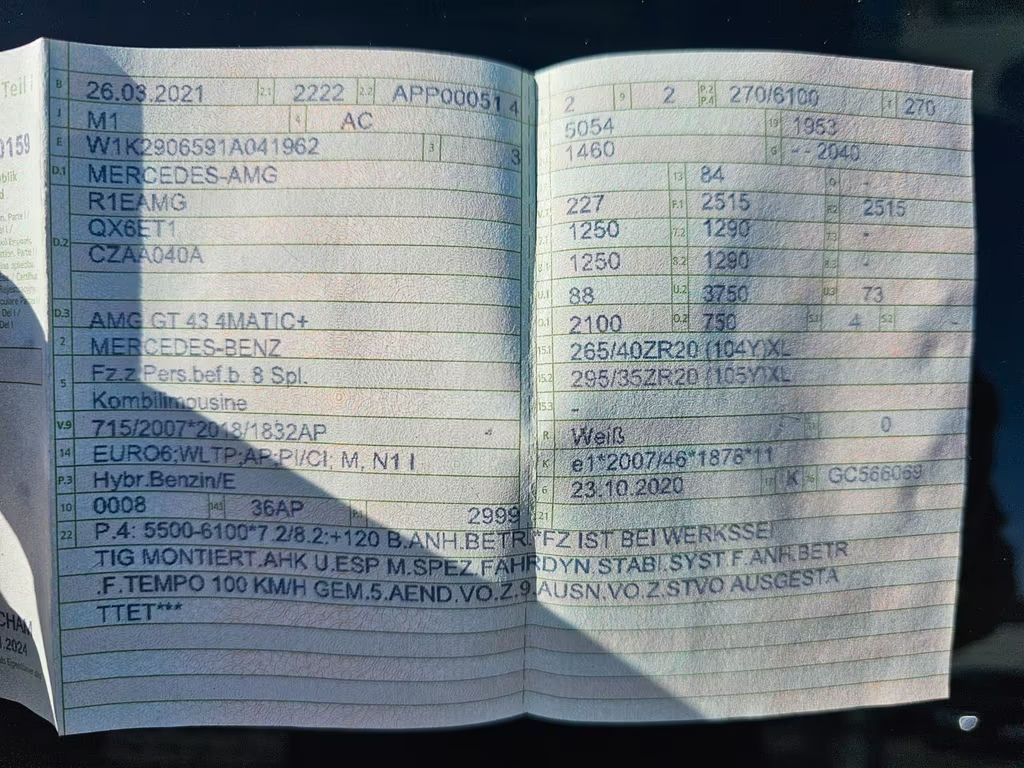 Teil I
0159
B 26.03.2021 2.1 2222 2.2 APP00051 4
J M1 4 AC
E W1K2906591A041962 3 3
D.1 MERCEDES-AMG
R1EAMG
D.2 QX6ET1
CZAA040A
D.3 AMG GT 43 4MATIC+
2 MERCEDES-BENZ
5 Fz.z.Pers.bef.b. 8 Spl.
Kombilimousine
V.9 715/2007*2018/1832AP
14 EURO6;WLTP;AP;PI/CI; M, N1 I
P.3 Hybr.Benzin/E
10 0008 14.1 36AP P.1 2999
22 P.4: 5500-6100*7.2/8.2:+120 B.ANH.BETR.*FZ IST BEI WERKSSEI
TIG MONTIERT.AHK U.ESP M.SPEZ.FAHRDYN.STABI.SYST.F.ANH.BETR
.F.TEMPO 100 KM/H GEM.5.AEND.VO.Z.9.AUSN.VO.Z.STVO AUSGESTA
TTET***
2 9 2 P.2 P.4 270/6100 T 270
5054 19 1953
1460 G - - 2040
13 84 Q -
V.7 227 F.1 2515 F.2 2515
7.1 1250 7.2 1290 7.3 -
8.1 1250 8.2 1290 8.3 -
U.1 88 U.2 3750 U.3 73
O.1 2100 O.2 750 S.1 4 S.2 -
15.1 265/40ZR20 (104Y)XL
15.2 295/35ZR20 (105Y)XL
15.3 -
R Weiß 0
K e1*2007/46*1876*11
6 23.10.2020 17 K 16 GC566069
21
CHAM
.2024